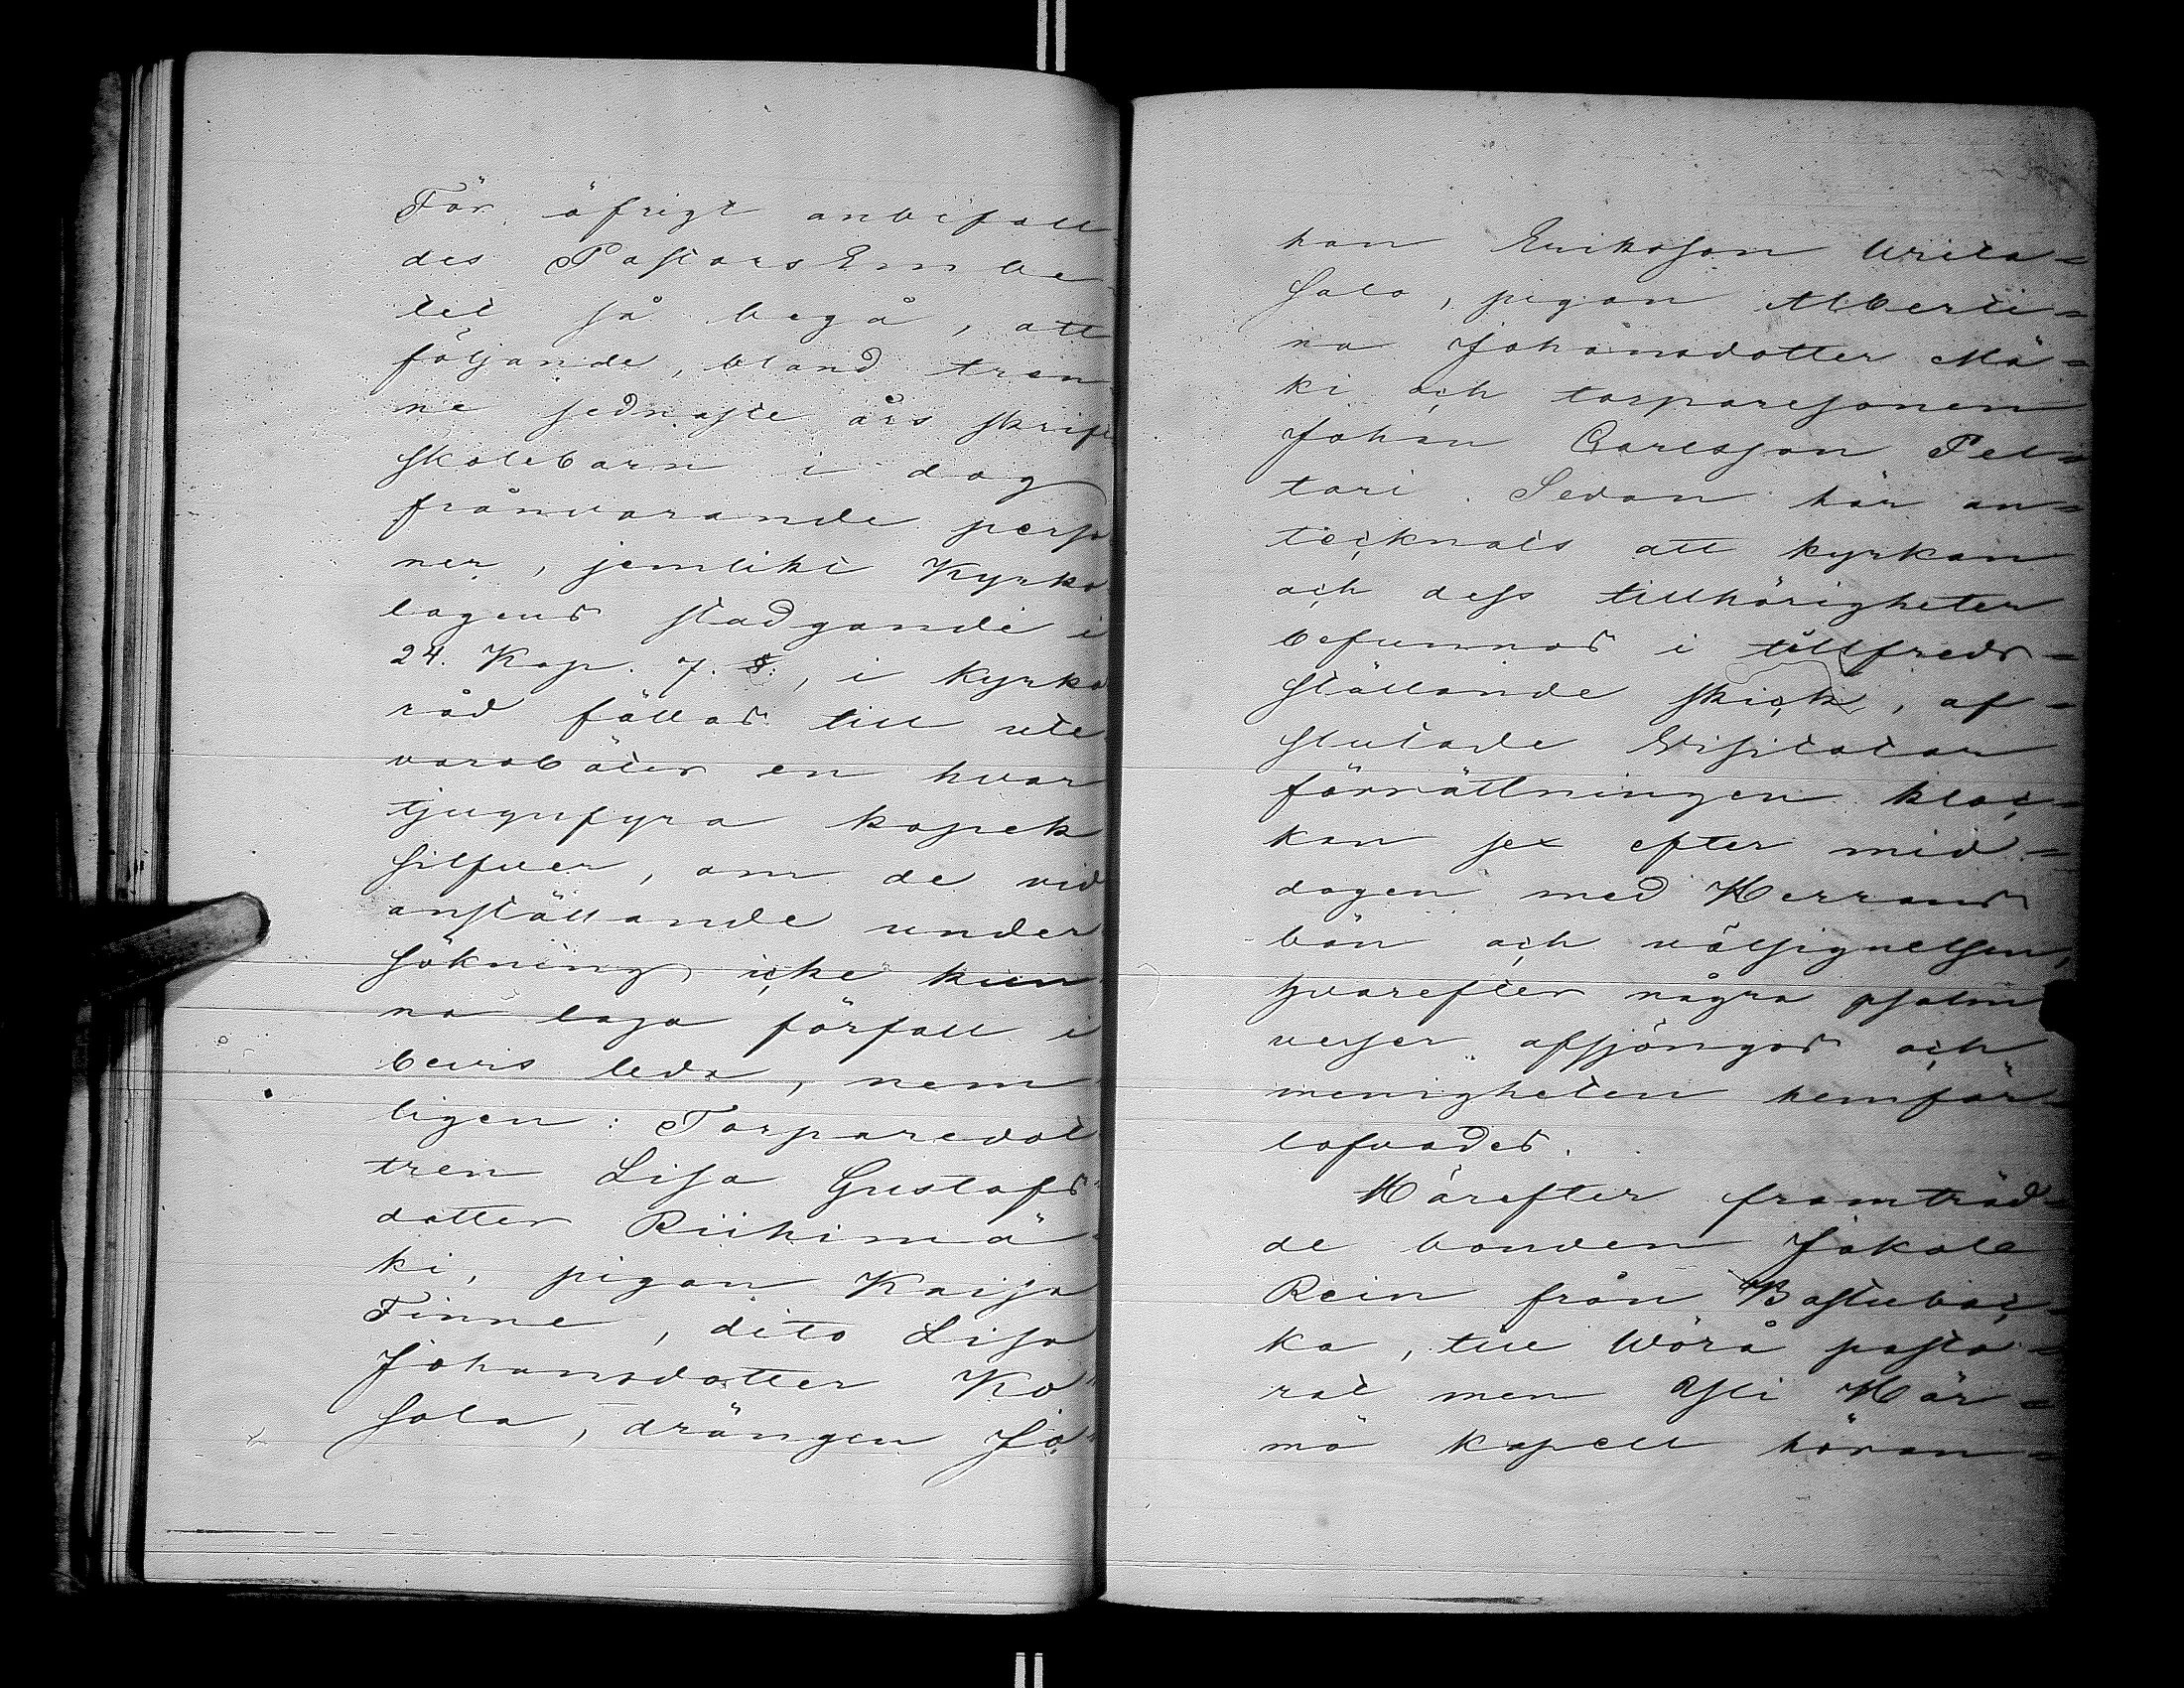 För öfrigt anbefall
des PastorsEmbe
tet så begå, att
följande, bland tren
ne sednaste års skrift
skolebarn i dag
frånvarande perso
ner, jemlikt Kyrko
lagens stadgande i
24. Kap. 7. §., i kyrko
råd fällas till ute
varoböter en hvar
tjugufyra kopek
silfver, om de vid
anställande under
sökning icke kun
na laga förfall i
bevis leda, nem
ligen: Torparedot
tren Lisa Gustafs
dotter Riihimä
ki, pigan Kaisa
Finne, dito Lisa
Johansdotter Ko
sola, drängen Jo
han Eriksson Writa=
salo, pigan Alberti=
na Johansdotter Mä=
ki och torparesonen
Johan Carlsson Pel=
tari. Sedan här an=
tecknats att kyrkan
och dess tillhörigheter
befunnos i tillfreds=
ställande skick, af=
slutade Visitator
förrättningen kloc=
kan sex efter mid=
dagen med Herrans
bön och välsignelsen,
hvarefter några psalm
verser afsjöngos och
menigheten hemför=
lofvades.
Härefter framträd=
de bonden Jakob
Rein från Bastubac=
ka, till Wörå pasto=
rat men Ylihär=
mä kapell höran=